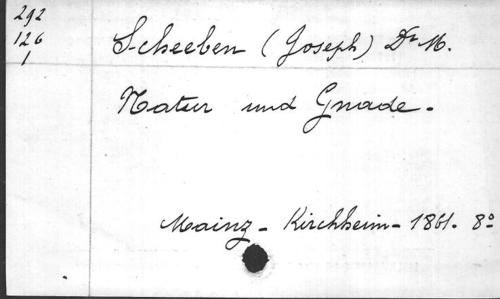 292
126
1
Scheeben (Joseph) Dr M.
Natur und Gnade.
Mainz - Kirchheim - 1861. 8º